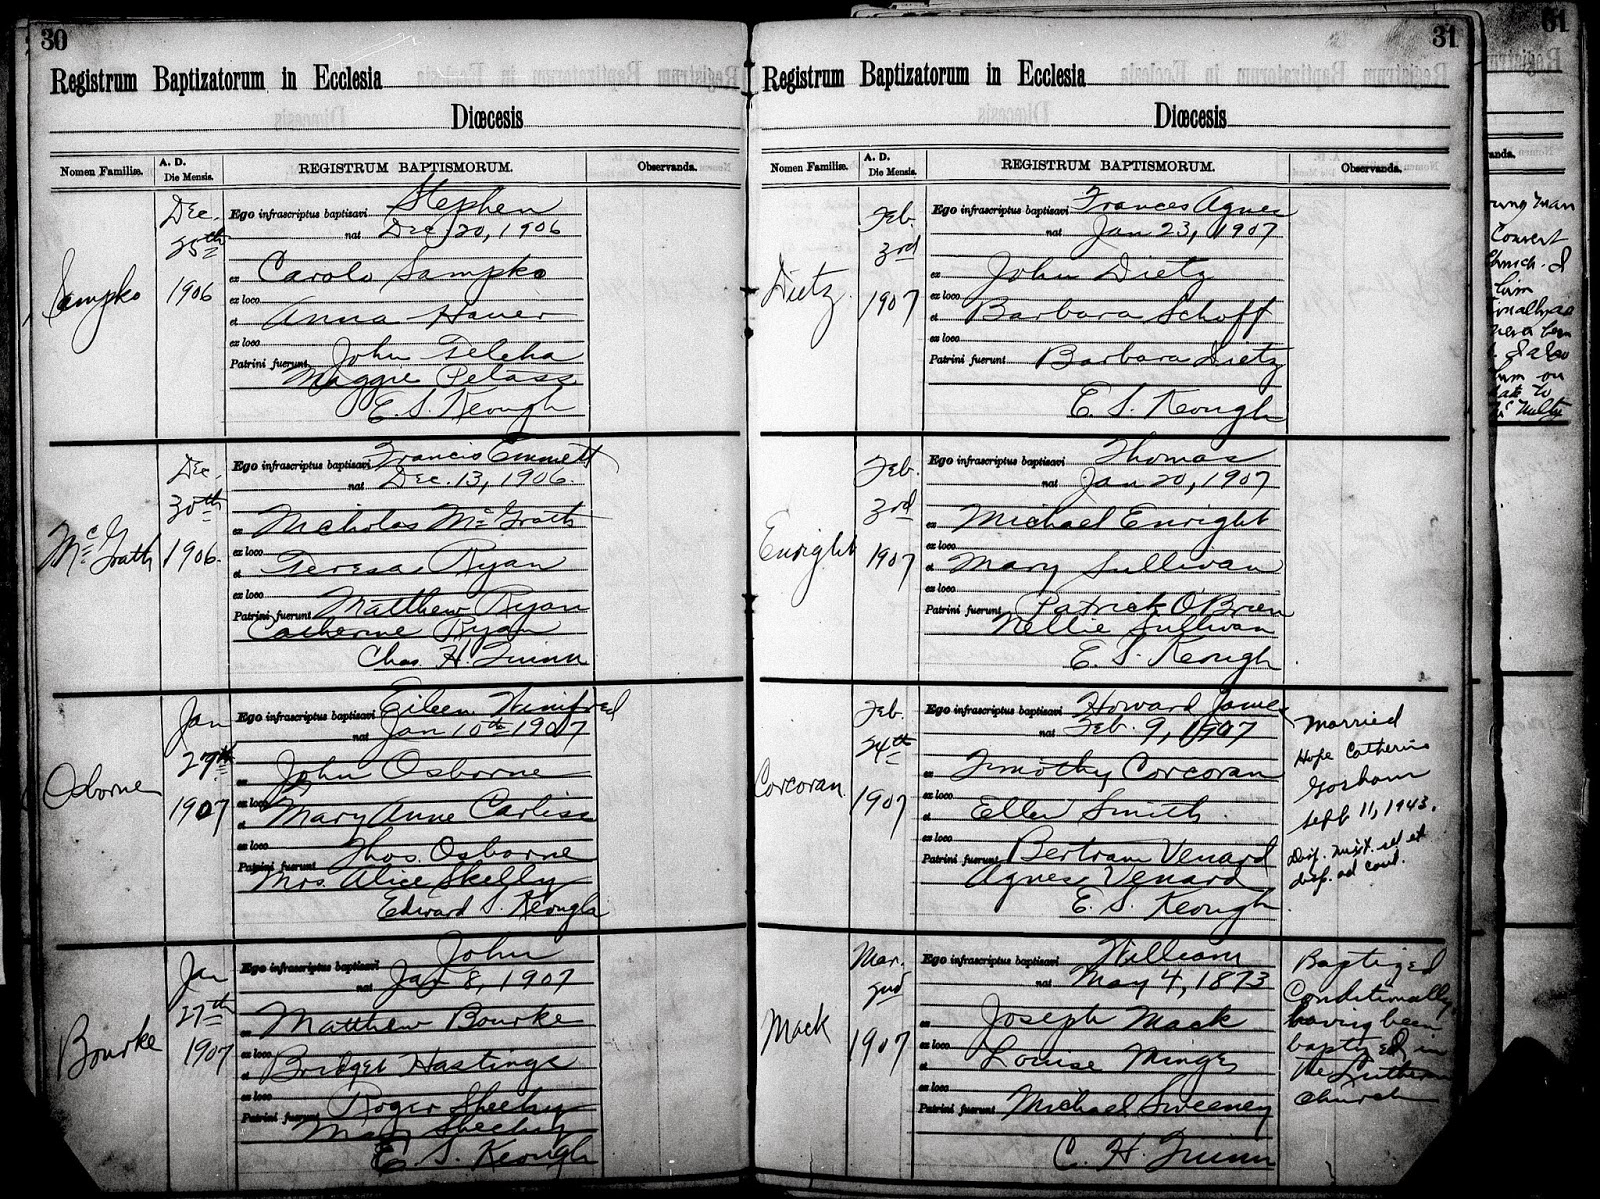 30
Registrum Baptizatorum in Ecclesia
Diœcesis
Nomen Familiæ.
A. D.
Die Mensis.
REGISTRUM BAPTISMORUM.
Observanda.
Sampko
Dec.
25th
1906
Ego infrascriptus baptisavi Stephen
nat Dec 20, 1906
ex Carolo Sampko
ex loco
et Anna Hauer
ex loco
Patrini fuerunt John
Maggie
E. S. Keough
McGrath
Dec.
30th
1906.
Ego infrascriptus baptisavi Francis Emmett
nat Dec. 13, 1906.
ex Nicholas McGrath
ex loco
et Teresa Ryan
ex loco
Patrini fuerunt Matthew Ryan
Catherine Ryan
Chas. H. Quinn
Osborne
Jan
27th
1907
Ego infrascriptus baptisavi Eileen Winifred
nat Jan 10th 1907
ex John Osborne
ex loco
et Mary Anne Carliss
ex loco
Patrini fuerunt Thos. Osborne
Mrs. Alice Skelly
Edward S. Keough
Bourke
Jan
27th
1907
Ego infrascriptus baptisavi John
nat Jan 8, 1907
ex Matthew Bourke
ex loco
et Bridget Hastings
ex loco
Patrini fuerunt Roger Sheehy
Mary Sheehy
E. S. Keough
31
Registrum Baptizatorum in Ecclesia
Diœcesis
Nomen Familiæ.
A. D.
Die Mensis.
REGISTRUM BAPTISMORUM.
Observanda.
Dietz
Feb.
3rd
1907
Ego infrascriptus baptisavi Frances Agnes
nat Jan 23, 1907
ex John Dietz
ex loco
et Barbara Schoff
ex loco
Patrini fuerunt Barbara Dietz
E. S. Keough
Enright
Feb.
3rd
1907
Ego infrascriptus baptisavi Thomas
nat Jan 20, 1907
ex Michael Enright
ex loco
et Mary Sullivan
ex loco
Patrini fuerunt Patrick O'Brien
Nellie Sullivan
E. S. Keough
Corcoran
Feb.
24th
1907
Ego infrascriptus baptisavi Howard James
nat Feb. 9, 1907
ex Timothy Corcoran
ex loco
et Ellen Smith
ex loco
Patrini fuerunt Bertram Venard
Agnes Venard
E. S. Keough
Married
Hope Catherine
Gorham
Sept 11, 1943.
Disp. mixt. rel et
disp. ad caut.
Mack
Mar.
2nd
1907
Ego infrascriptus baptisavi William
nat May 4, 1873
ex Joseph Mack
ex loco
et Louise Minges
ex loco
Patrini fuerunt Michael Sweeney
C. H. Quinn
Baptized
Conditionally
having been
baptized in
the Lutheran
church
61
Convert